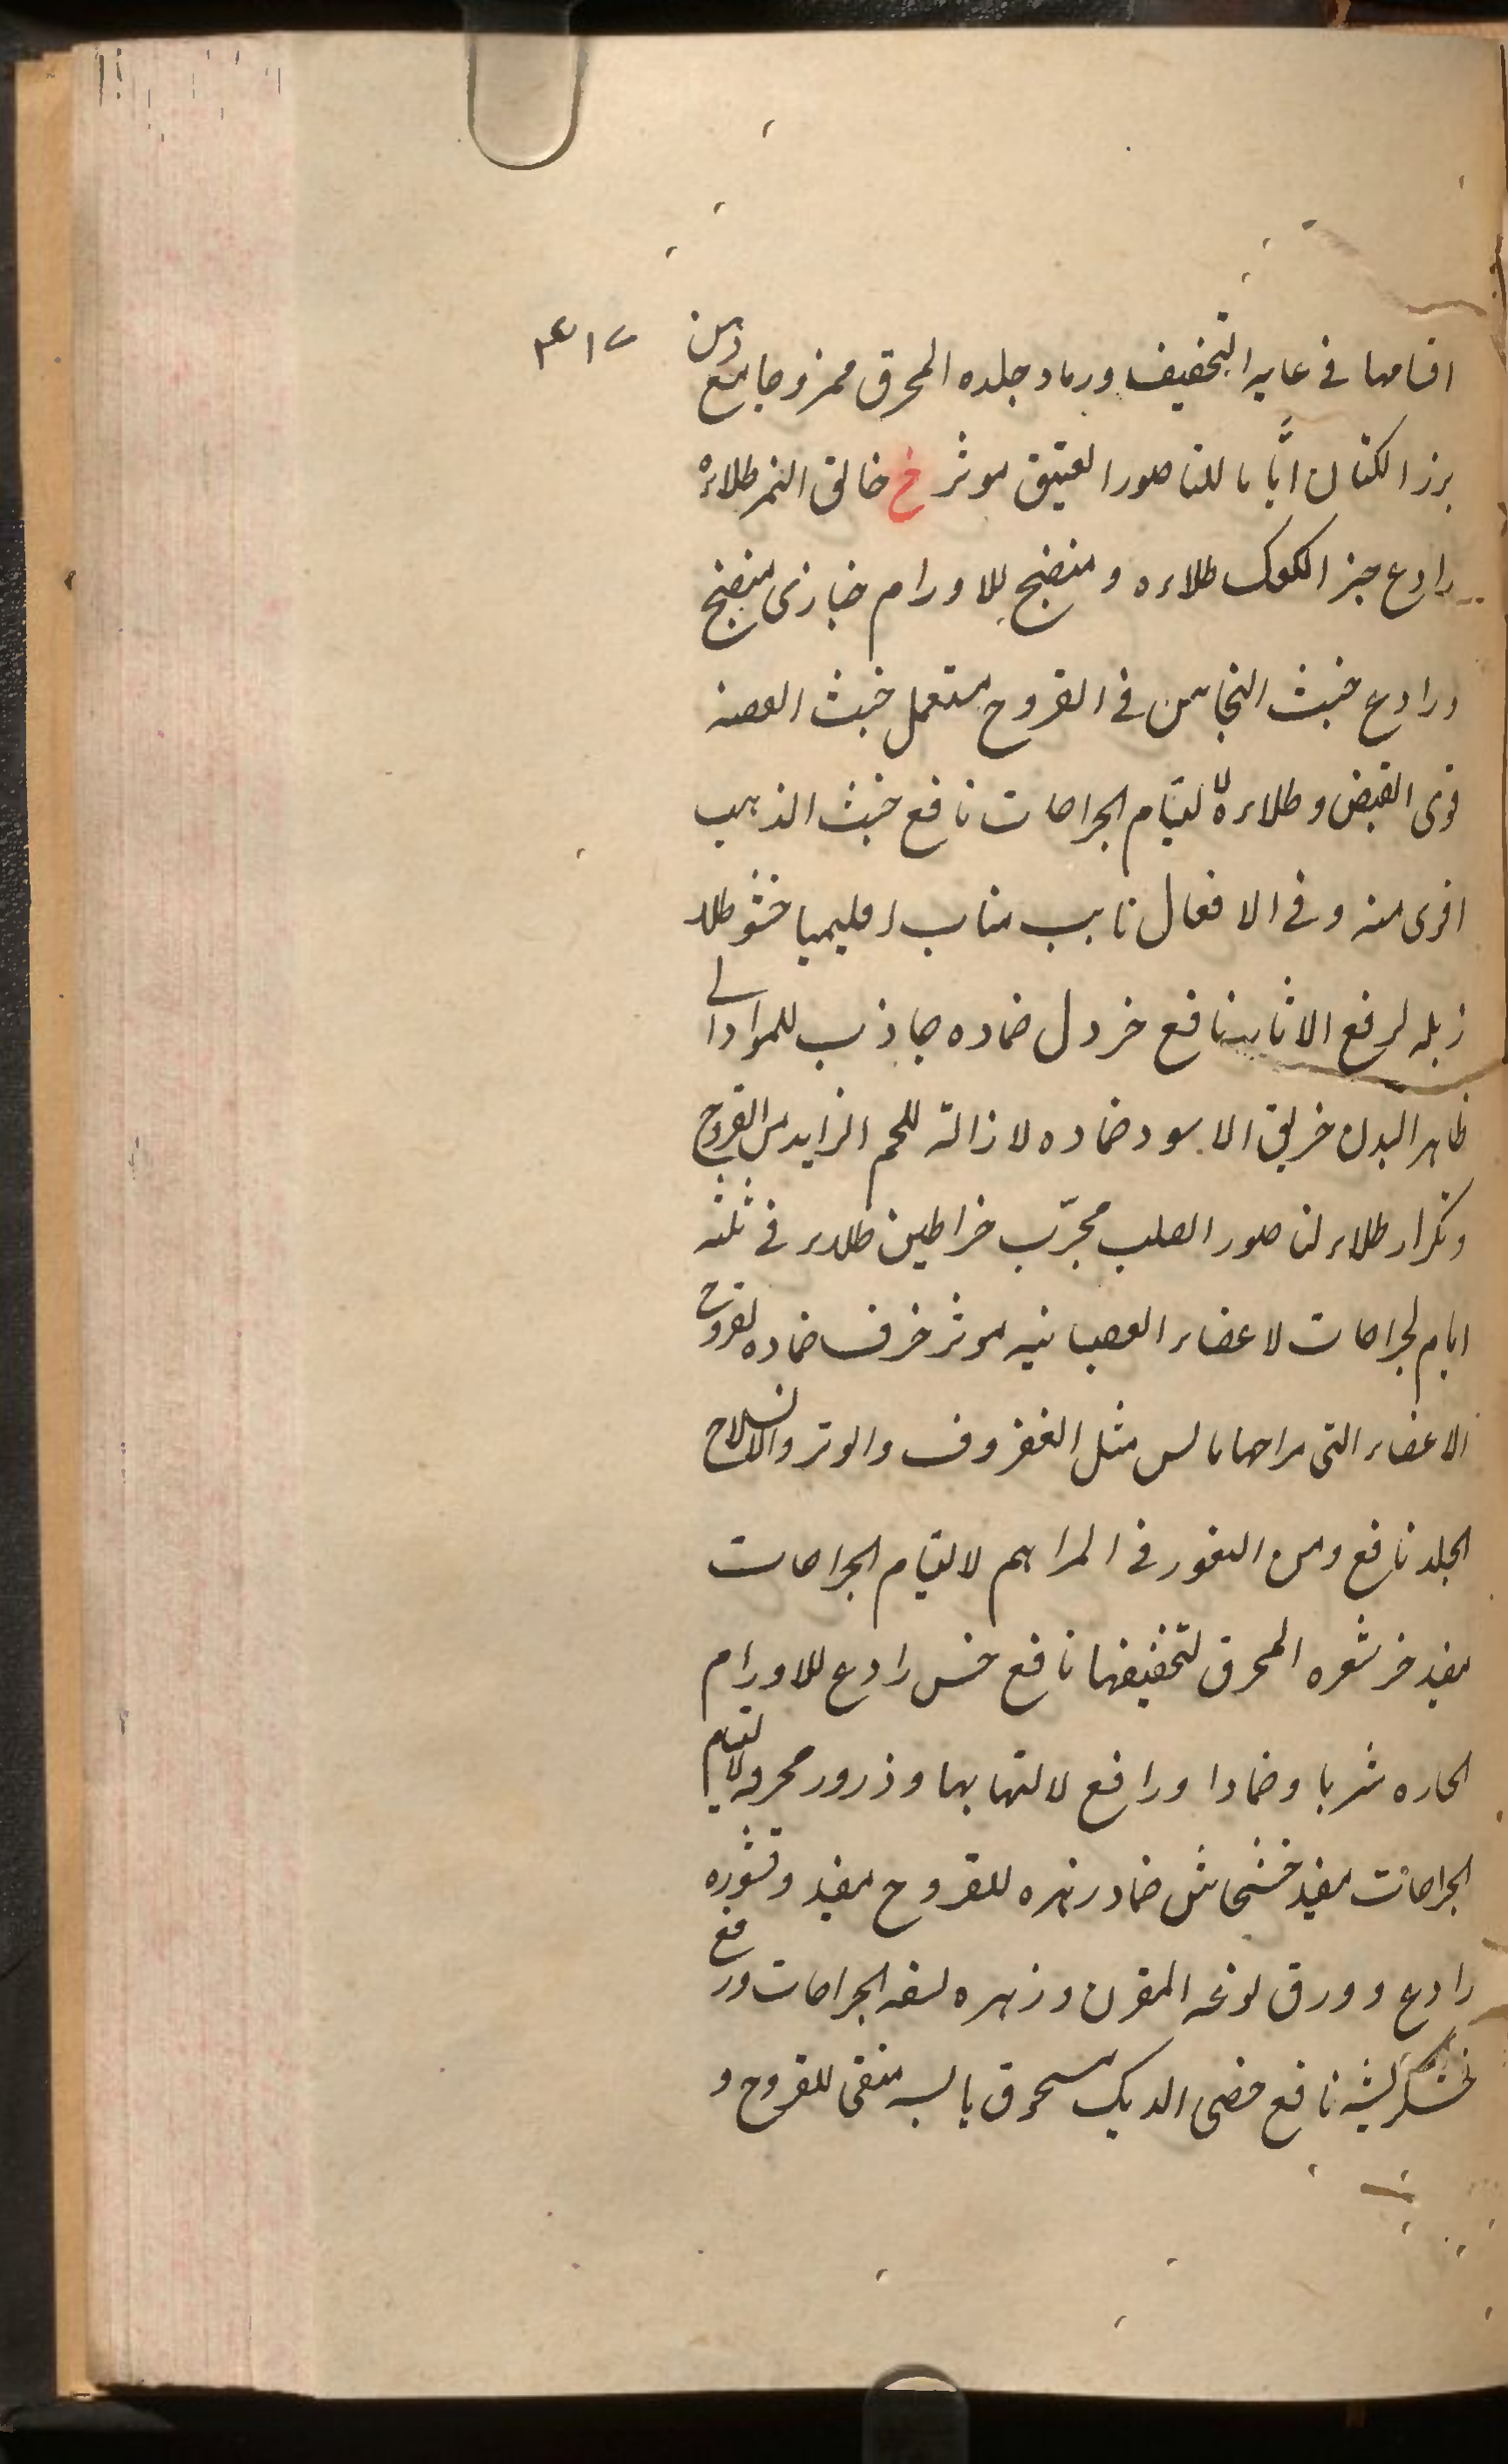 ۴۱۷
اقسامها فی غایه التجفیف ورماد جلده المحرق ممزوجا مع دهن
بزر الکتان ایّاما للناصور العتیق موثر خ خانق النمر طلاءه
رادع خبز الکعک طلاءه ومنضج للاورام خبازی منضج
ورادع خبث النحاس فی القروح مستعمل خبث الفضه
قوی القبض وطلاءه لالتیام الجراحات نافع خبث الذهب
اقوی منه وفی الافعال نایب مناب اقلیمیا خشو طلاء
زبله لرفع الاثار نافع خردل ضماده جاذب للمواد الی
ظاهر البدن خربق الاسود ضماده لازالة للحم الزاید من القروح
وتکرار طلاء لناصور الصلب مجرّب خراطین طلاء فی ثلثه
ایام لجراحات لاعضاء العصبانیه موثر خرف ضماده لقروح
الاعضاء التی مزاجها یابس مثل الغضروف والوتر والانسلاخ
الجلد نافع ومن البخور فی المراهم لالتیام الجراحات
مفید خز شعره المحرق لتجفیفها نافع خس رادع للاورام
الحاره شربا وضمادا ورافع لالتهابها وذرور محرقه لالتیام
الجراحات مفید خشخاش ضماد زهره للقروح مفید وقشوره
رادع وورق نوعه المقرن وزهره لتنقیه الجراحات ورفع
خشکریشه نافع خصی الدیک مسحوق یابسه منقی للقروح و